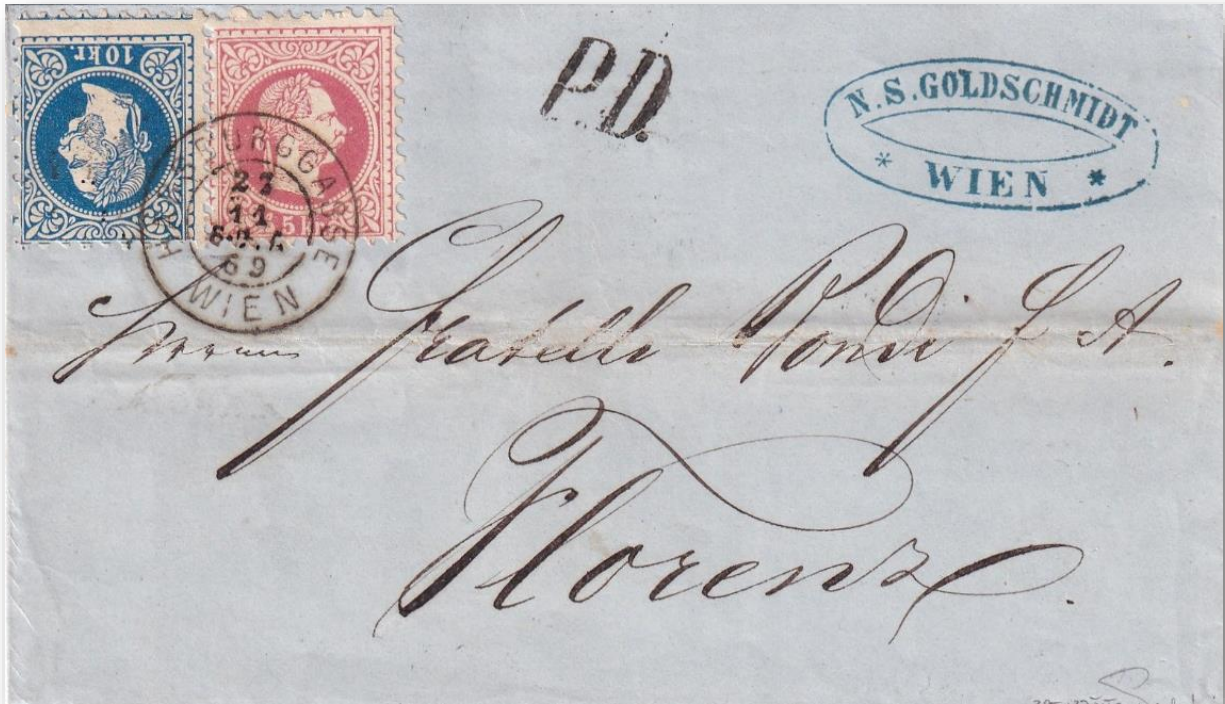 10 kr.
5 k
HABSBURGGASSE
23
11
69
WIEN
P.D.
N. S. GOLDSCHMIDT
* WIEN *
Herren Fratelli Pondi f A.
Florenz.